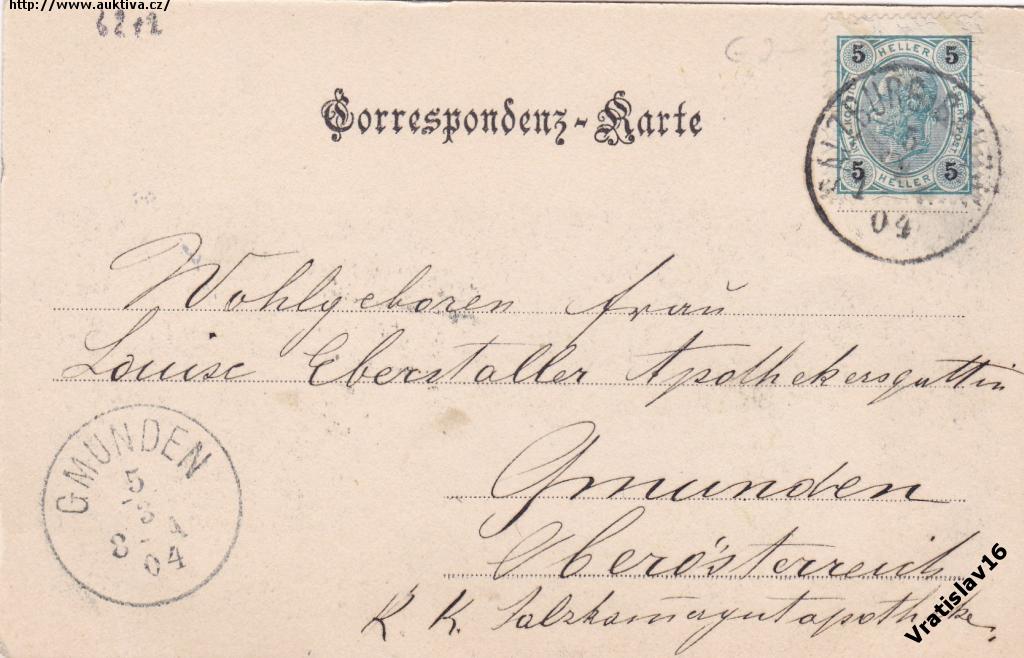 http://www.auktiva.cz/
6212
G 2-
5 HELLER 5
5 HELLER 5
04
Correspondenz-Karte
Wohlgeboren Frau
Louise Eberstaller Apothekersgattin
Gmunden
Oberösterreich
K. K. Salzkam̄ergutapotheke.
GMUNDEN
5
3
8 A
04
Vratislav16